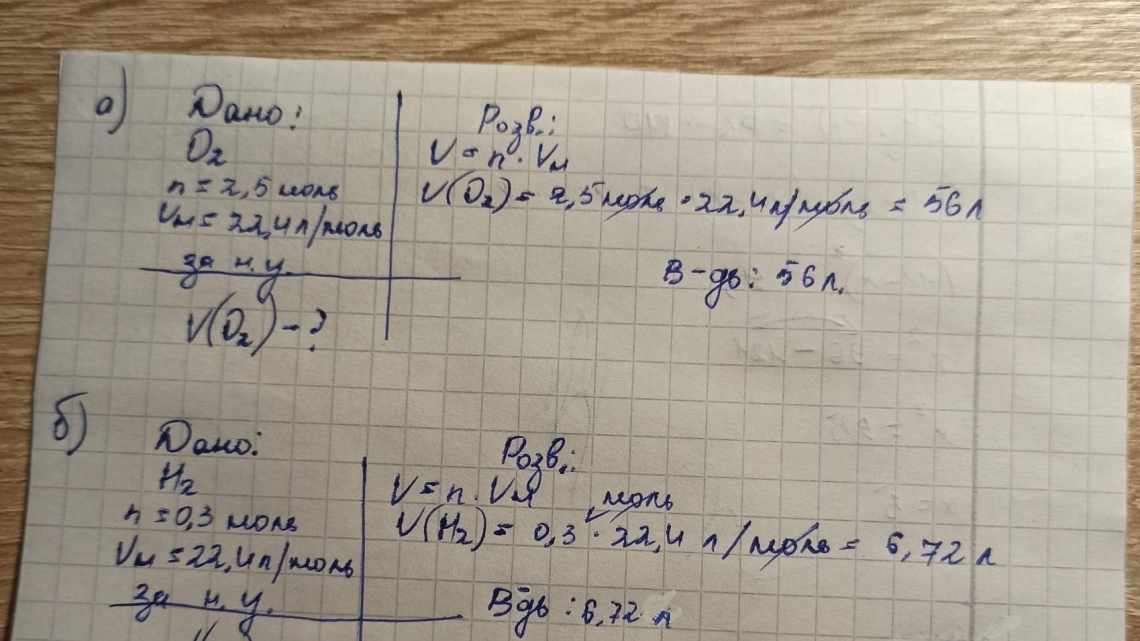 а)
Дано:
O₂
n = 2,5 моль
Vм = 22,4 л/моль
за н.у.
V(O₂) - ?
Розв.:
V = n · Vм
V(O₂) = 2,5 моль · 22,4 л/моль = 56 л
В-дь: 56 л.
б)
Дано:
H₂
n = 0,3 моль
Vм = 22,4 л/моль
за н.у.
Розв.:
V = n · Vм
моль
V(H₂) = 0,3 · 22,4 л/моль = 6,72 л
В-дь: 6,72 л